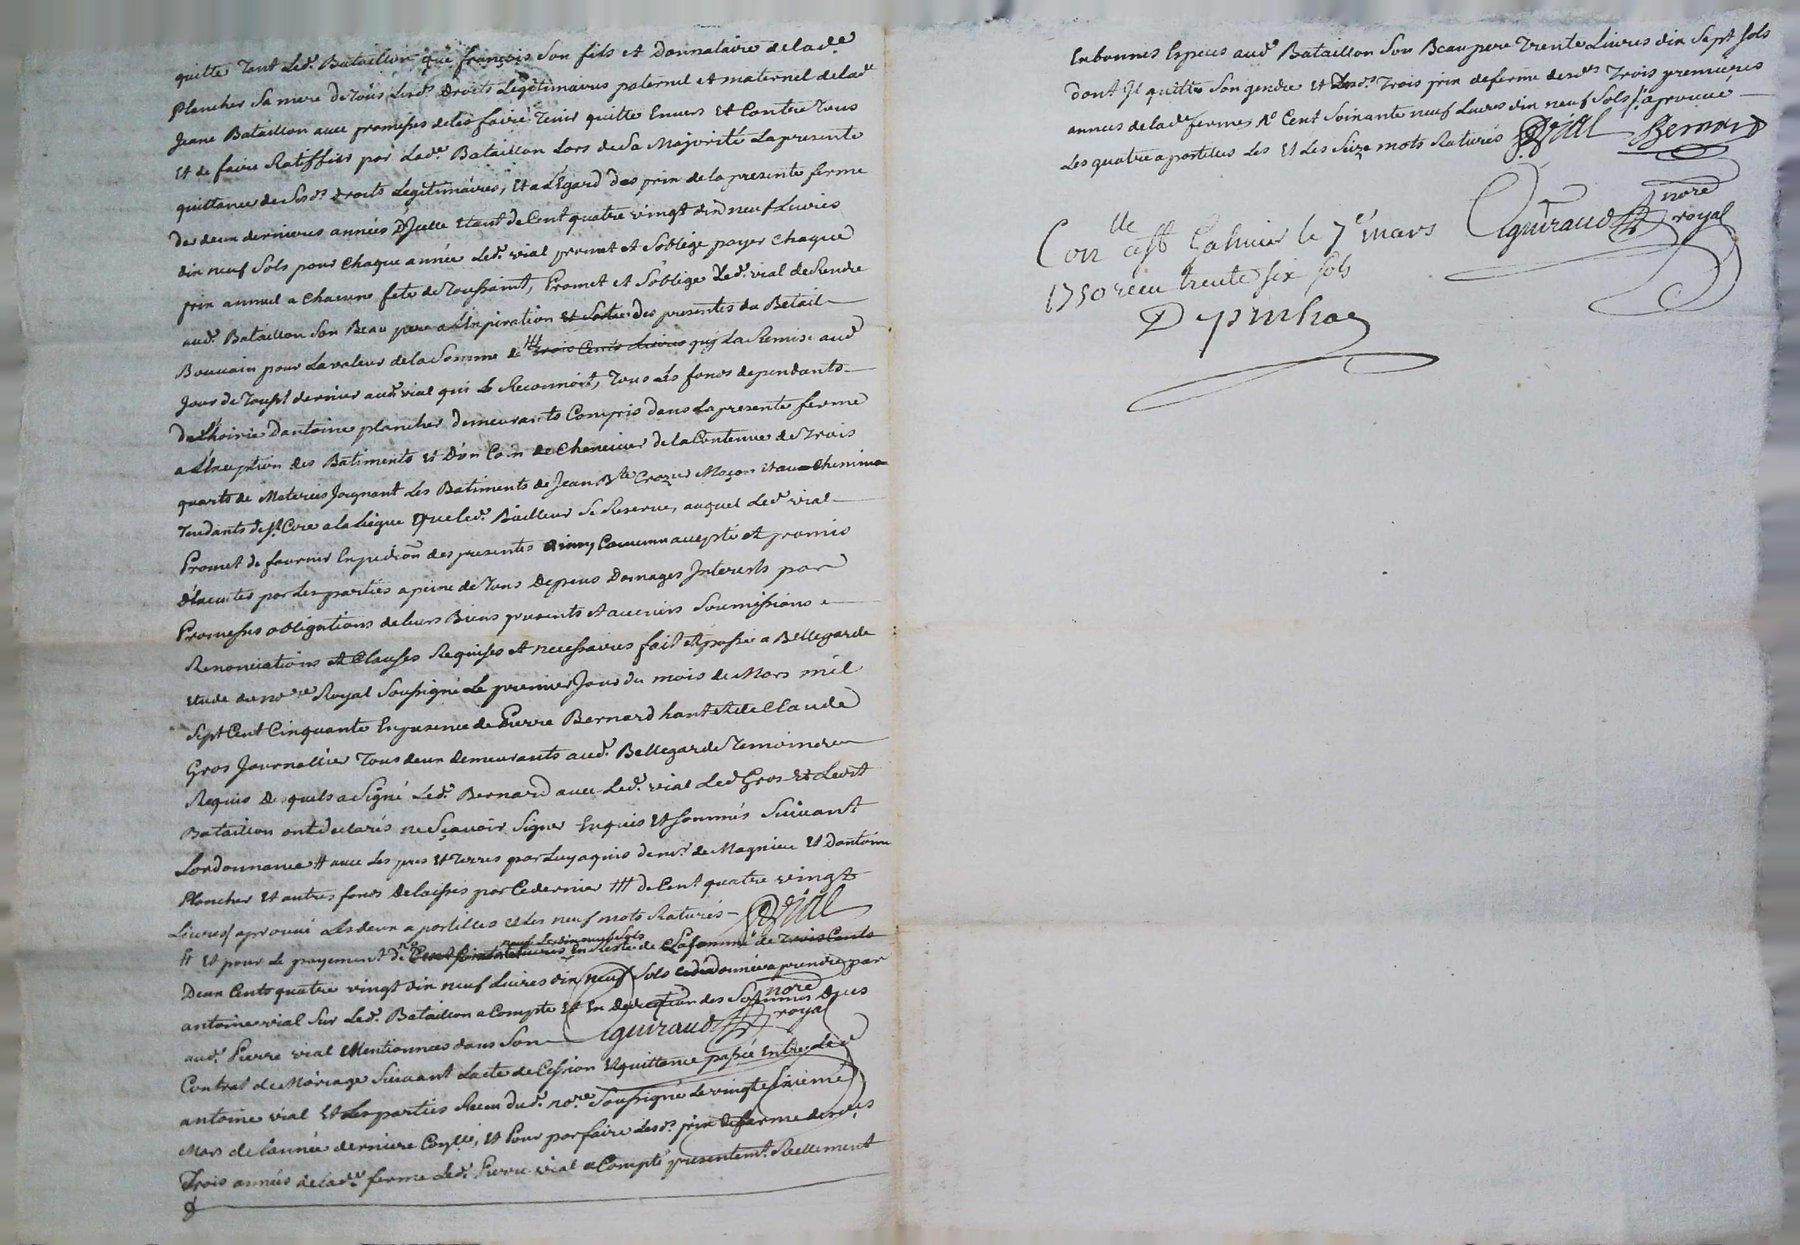 quitte tant Led.t Bataillon que françois Son fils et Donnataire de lad.e
Plancher Sa mere de Tous Lesd.s Droits Legitimaires paternel et maternel de lad.e
Jeane Bataillon avec promesses de les faire Tenir quitte Envers Et Contre Tous
Et de faire Ratiffier par Lad.e Bataillon Lors de Sa Majorité La presente
quittance de Sesd.s droits Legitimaires, Et a L'Egard des prix de la presente ferme
des deux dernieres années D'Jcelle Etant de Cent quatre vingt dix neuf Livres
dix neuf Sols pour Chaque année Led.t vial promet et S'oblige payer Chaque
prix annuel a Chacune fete de Toussaint, Promet et S'oblige Led.t vial de Rendre
aud.t Bataillon Son Beau pere a L'Expiration Et Sortie des presentes du Betail
Bouvain pour La valeur de la Somme de ttt trois Cents Livres qu'il La Remis aud.
Jour de Touss.t dernier aud.t vial qui Le Reconnoit, Tous Les fonds dependants
de L'hoirie D'antoine plancher demeurants Compris dans La presente ferme
a L'Exception des Batiments Et D'un Coin de Chenevier de la Contenue de Trois
quarts de Meterées Joignant Les Batiments de Jean B.te Crozier Maçon Et au Chemin
Tendants de S.t Cire a la Liegue Que led.t Bailleur Se Reserve, auquel Led.t vial
Promet de fournir Expedion des presentes Ainsy Convenu accepté et promis
D'Executer par Les parties a peine de Tous Depens Domages Interests par
Promesses obligations de leurs Biens presents et avenirs Soumissions
Renonciations et Clauses Requises et necessaires fait et passé a Bellegarde
Etude du no.re Royal Soussigné Le premier Jour du mois de Mars mil
Sept Cent Cinquante En presence de Pierre Bernard hant et de Claude
Gros Journallier Tous deux demeurants aud.t Bellegarde Temoins
Requis Desquels a Signé Led.t Bernard avec Led.t vial Led Gros Et Ledit
Bataillon ont declarés ne Sçavoir Signer Enquis Et Sommés Suivant
Lordonnance # avec Les pres Et Terres par Luy aquis de mr. de Magnieu Et D'antoine
Plancher Et autres fonds delaissés par Ce dernier ttt de Cent quatre vingt
Livres / aprouvé Les deux apostilles et Les neuf mots Raturés PVial
# Et pour Le payement de Cent Livres En Reste de La Somme de Trois Cents
neuf Livres dix neuf Sols
Deux Cents quatre vingt dix neuf Livres dix neuf Sols cedé donné a prendre par
antoine vial Sur Led.t Bataillon a Compte Et En Deduction des Sommes Dues
aud.t Pierre vial Mentionnées dans Son
Aguiraud noré royal
Contrat de Mariage Suivant L'acte de Cession Et quittance passée Entre Led.
antoine vial Et Les parties Receu dud.t no.re Soussigné Le vingt Sixieme
Mars de l'année derniere Con.llé, et Pour parfaire Lesd.s prix de ferme desd.es
Trois années de lad.e ferme Led.t Pierre vial a Compté presentem.t Reellement
En bonnes Especes aud.t Bataillon Son Beau pere Trente Livres dix Sept Sols
dont Jl quitte Son gendre et Desd.s Trois prix de ferme desd.es Trois premieres
années de lad.e ferme, N.o Cent Soixante neuf Livres dix neuf Sols / aprouvé
Les quatre apostilles Les Et Les Seize mots Raturés PVial Bernard
Aguiraud noré royal
Con.lle a St Galmier le 7e mars
1750 receu trente six sols